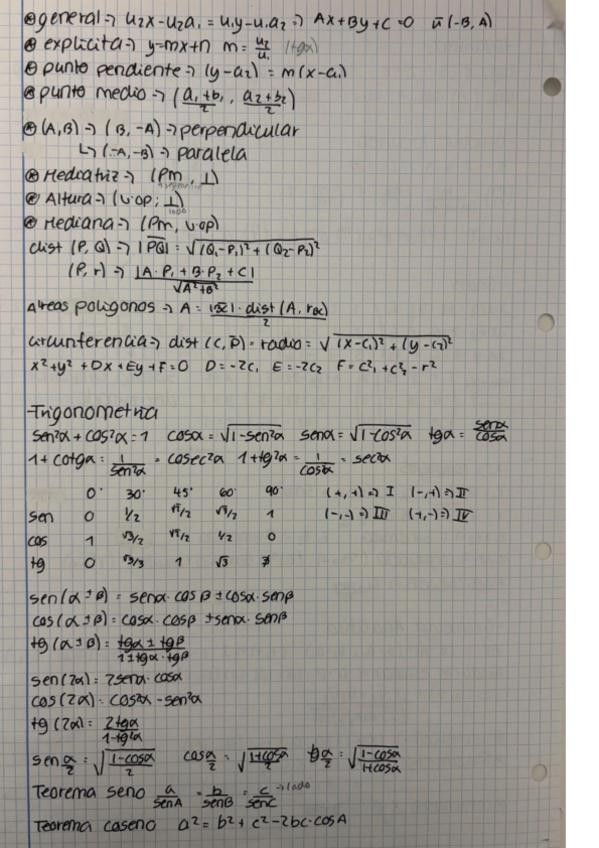 ⊛ general → u₂x - u₂a₁ = u₁y - u₁a₂ → Ax + By + C = 0 ū (-B, A)
⊛ explícita → y = mx + n m = u₂/u₁ (tgα)
⊛ punto pendiente → (y - a₂) = m(x - a₁)
⊛ punto medio → (a₁ + b₁/2, a₂ + b₂/2)
⊛ (A, B) → (B, -A) → perpendicular
↳ (-A, -B) → paralela
⊛ Mediatriz → (Pm, ⊥)
⊛ Altura → (v.op; ⊥)
lado
⊛ Mediana → (Pm, v.op)
dist (P, Q) → |PQ| = √(Q₁ - P₁)² + (Q₂ - P₂)²
(P, r) → |A · P₁ + B · P₂ + C| / √A² + B²
Áreas polígonos → A = |BC| · dist (A, rBC) / 2
circunferencia → dist (C, P) = radio = √(x - c₁)² + (y - c₂)²
x² + y² + Dx + Ey + F = 0 D = -2c₁ E = -2c₂ F = c²₁ + c²₂ - r²
Trigonometría
sen²α + cos²α = 1 cosα = √1 - sen²α senα = √1 - cos²α tgα = senα/cosα
1 + cotgα = 1/sen²α = cosec²α 1 + tg²α = 1/cos²α = sec²α
0° 30° 45° 60° 90° (+, +) ⇒ I (-, +) ⇒ II
sen 0 1/2 √2/2 √3/2 1 (-, -) ⇒ III (+, -) ⇒ IV
cos 1 √3/2 √2/2 1/2 0
tg 0 √3/3 1 √3 ∄
sen(α ± β) = senα · cosβ ± cosα · senβ
cos(α ± β) = cosα · cosβ ± senα · senβ
tg(α ± β) = tgα ± tgβ / 1 ± tgα · tgβ
sen(2α) = 2senα · cosα
cos(2α) = cos²α - sen²α
tg(2α) = 2tgα / 1 - tg²α
sen α/2 = √1 - cosα / 2 cos α/2 = √1 + cosα / 2 tg α/2 = √1 - cosα / 1 + cosα
Teorema seno a/senA = b/senB = c/senC → lado
Teorema coseno a² = b² + c² - 2bc · cosA